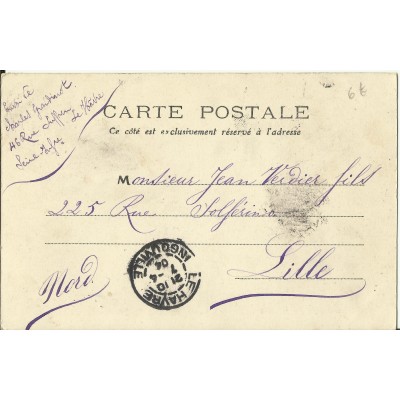 6 €
Charles
46 Rue
Le Havre
Seine Infre
CARTE POSTALE
Ce côté est exclusivement réservé à l'adresse
Monsieur Jean Verdier fils
225 Rue Solférino
Lille
Nord
LE HAVRE
INGOUVILLE